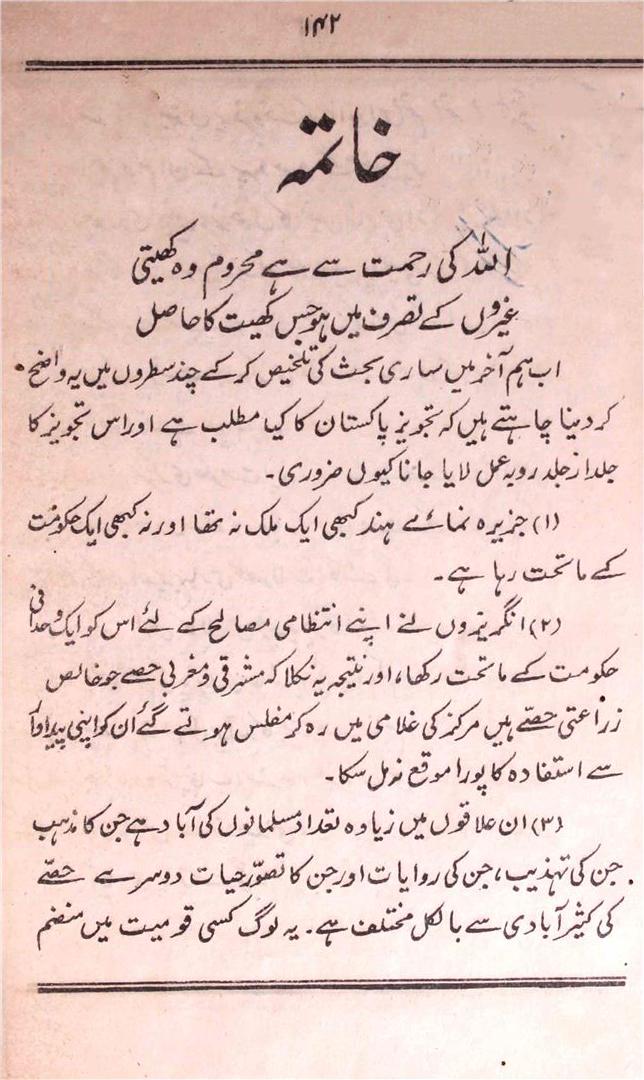 ۱۴۲
خاتمہ
اللہ کی رحمت سے ہے محروم وہ کھیتی
غیروں کے تصرف میں ہو جس کھیت کا حاصل
اب ہم آخر میں ساری بحث کی تلخیص کر کے چند سطروں میں یہ واضح
کر دینا چاہتے ہیں کہ تجویز پاکستان کا کیا مطلب ہے اور اس تجویز کا
جلد از جلد روبہ عمل لایا جانا کیوں ضروری۔
(۱) جزیرہ نمائے ہند کبھی ایک ملک نہ تھا اور نہ کبھی ایک حکومت
کے ماتحت رہا ہے۔
(۲) انگریزوں نے اپنے انتظامی مصالح کے لئے اس کو ایک وحدانی
حکومت کے ماتحت رکھا، اور نتیجہ یہ نکلا کہ مشرقی و مغربی حصے جو خالص
زراعتی حصے ہیں مرکز کی غلامی میں رہ کر مفلس ہوتے گئے ان کو اپنی پیداوار
سے استفادہ کا پورا موقع نہ مل سکا۔
(۳) ان علاقوں میں زیادہ تعداد مسلمانوں کی آباد ہے جن کا مذہب
جن کی تہذیب، جن کی روایات اور جن کا تصوّر حیات دوسرے حصّے
کی کثیر آبادی سے بالکل مختلف ہے۔ یہ لوگ کسی قومیت میں منضم